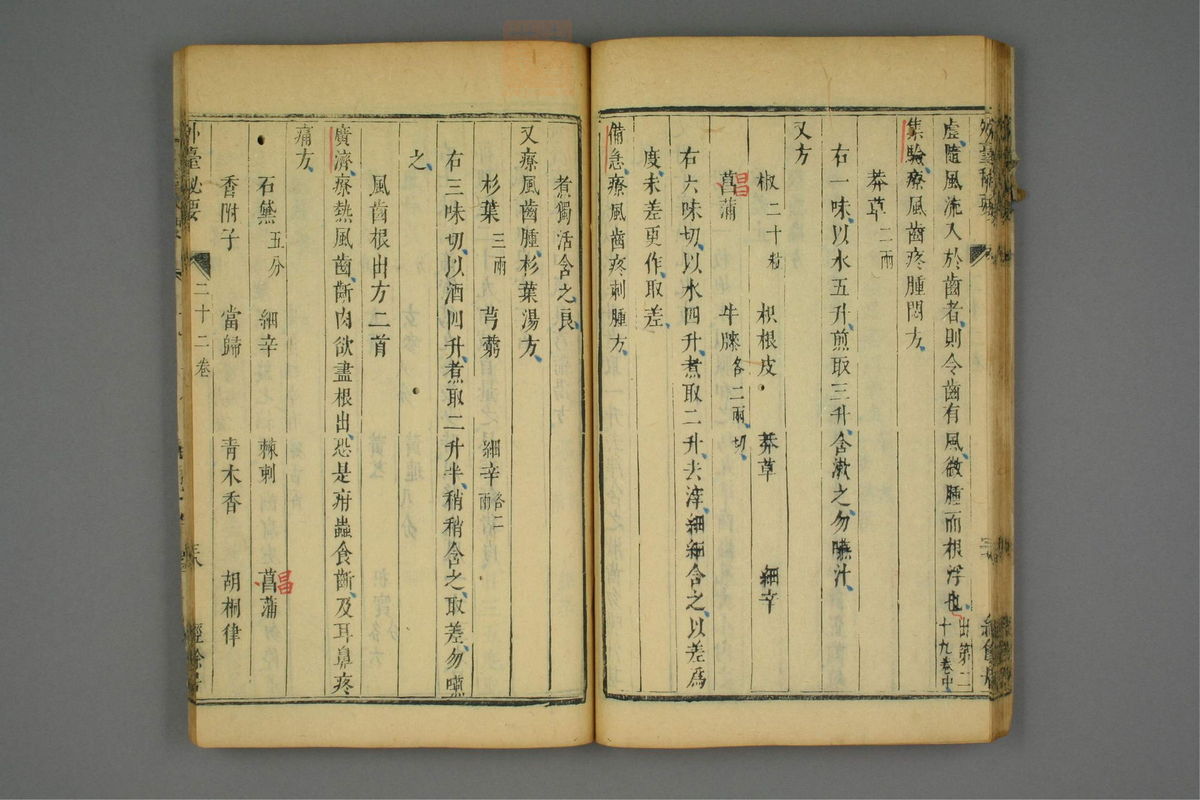 虛隨風流入於齒者則令齒有風微腫而根浮也出第二十九卷中
集驗療風齒疼腫悶方
莽草二兩
右一味以水五升煎取三升含漱之勿嚥汁
又方
椒二十粒 枳根皮 莽草 細辛
菖蒲 牛膝各二兩切
右六味切以水四升煮取二升去滓細細含之以差爲
度未差更作取差
備急療風齒疼刺腫方
煮獨活含之良
又療風齒腫杉葉湯方
杉葉三兩 芎藭 細辛各二兩
右三味切以酒四升煮取二升半稍稍含之取差勿嚥
之
風齒根出方二首
廣濟療熱風齒齗肉欲盡根出恐是疳蟲食齗及耳鼻疼
痛方
石黛五分 細辛 棘刺 菖蒲
香附子 當歸 青木香 胡桐律
外臺祕要 二十二卷 經餘居
昌
昌